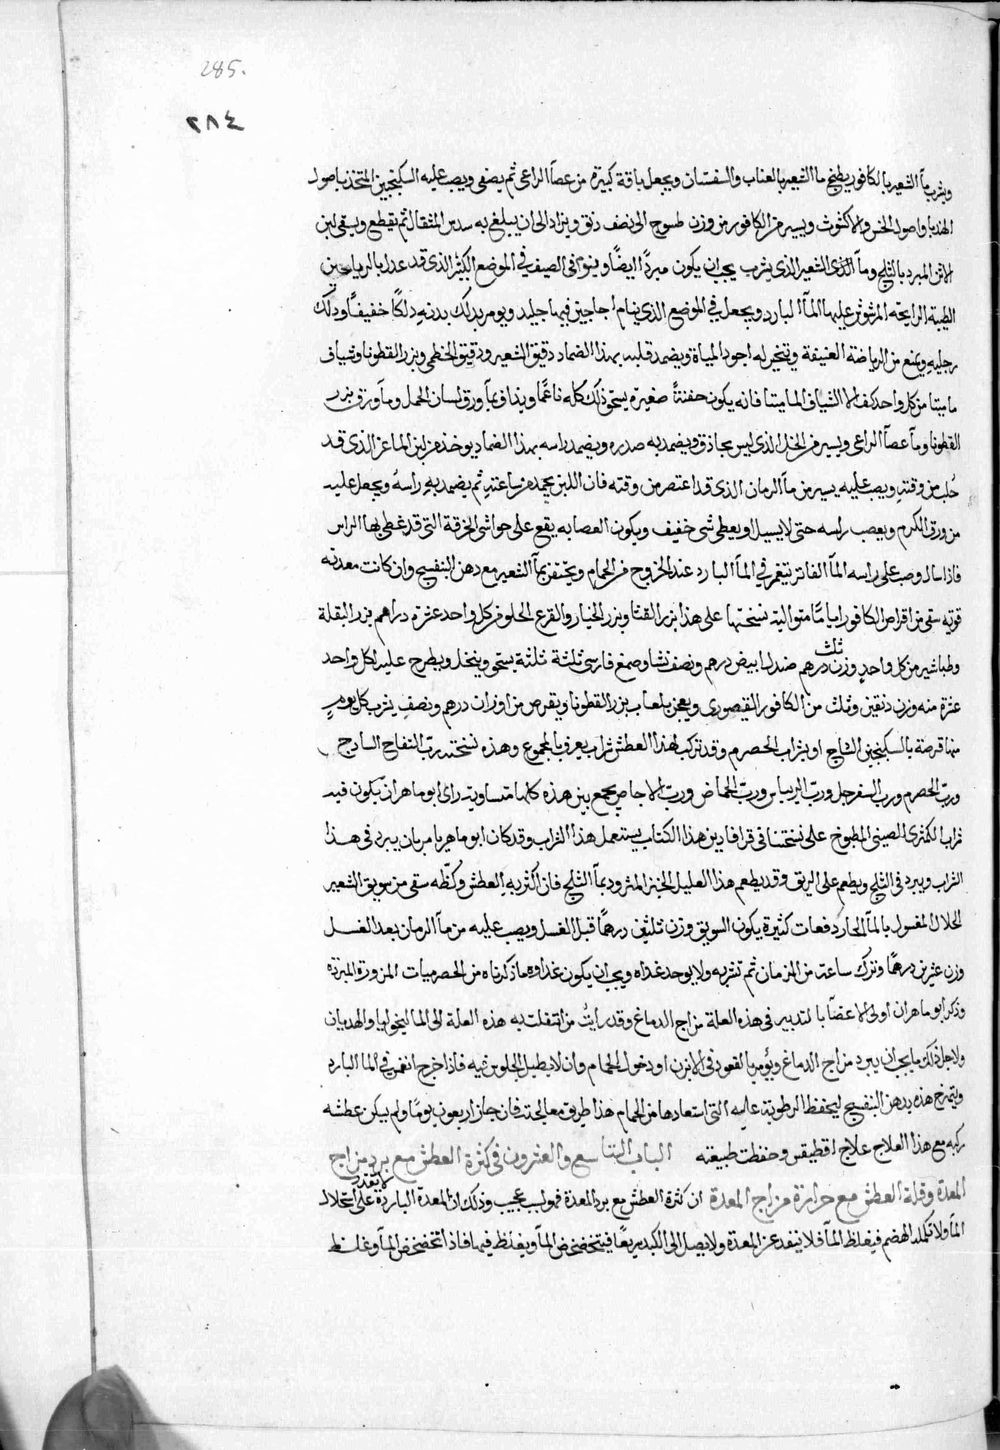 285.
٢٨٤
ويشرب ماء الشعير بالكافور يطبخ ماء الشعير بالعناب والسفستان ويجعل باقة كبيرة من عصا الراعى ثم يصفى ويصب عليه السكنجبين المتخذ باصول
الهندبا واصول الخس والاكشوث ويسير من الكافور من وزن طسوج الى نصف دنق ويزاد الى ان يبلغ به سدس المثقال ثم يقطع ويسقى لبن
الاتن المبرد بالثلج وماء الذى الشعير الذى يشرب يجب ان يكون مبردًا ايضًا وينوم فى الصيف فى الموضع الكثير الذى قد عدل بالرياحين
الطيبة الرايحة المرشوش عليها الماء البارد ويجعل فى الموضع الذى ينام اجاجين فيها جليد ويومر بدلك بدنه دلكًا خفيفًا ودلك
رجليه ويمنع من الرياضة العنيفة ويتخير له اجود المياة ويضمد قلبه بهذا الضماد دقيق الشعير ودقيق الخطمى وبزر القطونا وشياف
ماميثا من كل واحد كف الا الشياف الماميثا فانه يكون حفنة صغيرة يسحق ذلك كله ناعمًا ويذاف بماء ورق لسان الحمل وماء ورق بزر
القطونا وماء عصا الراعى ويسير من الخل الذى ليس بحاذق ويضمد به صدره ويضمد راسه بهذا الضماد يوخذ من لبن الماعز الذى قد
حُلب من وقته ويصب عليه يسير من ماء الرمان الذى قد اعتصر من وقته فان اللبن يجمد من ساعته ثم يضمد به راسهُ ويجعل عليه
من ورق الكرم ويعصب راسه حتى لا يسيل او يغطى شى خفيف ويكون العصابه يقع على حواشى الخرقة التى قد غطى بها الراس
فاذا سال وصب على راسه الماء الفاتر ينغمر فى الماء البارد عند الخروج من الحمام ويحتقن بماء الشعير مع دهن البنفسج وان كانت معدته
قويه سقى من اقراص الكافور اياما متوالية نسختها على هذا بزر القثا وبزر الخيار والقرع الحلو من كل واحد عشرة دراهم بزر البقلة
وطباشير من كل واحدٍ وزن ثلث درهم صندل ابيض درهم ونصف نشا وصمغ فارسى ثلثة ثلثة يسحق وينخل ويطرح عليه لكل واحد
عشرة منه وزن دنقين وثلث من الكافور القيصورى ويعجن بلعاب بزر القطونا ويقرص من اوزان درهم ونصف يشرب كل يوم
منها قرصة بالسكنجبين الساذج او بشراب الحصرم وقد تركب لهذا العطش شراب يعرف بالمجموع وهذه نسخته ربّ التفاح الساذج
وربّ الحصرم ورب السفرجل وربّ الريباس وربّ الحماض وربّ الاجاص يجمع بين هذه كلها متساوية راى ابو ماهران يكون فيه
شراب الكمثرى الصينى المطبوخ على نسختنا فى قرافادين هذا الكتاب يستعمل هذا الشراب وقد كان ابو ماهر يامر بان يبرد فى هذا
الشراب ويبرد فى الثلج ويطعم على الريق وقد يطعم هذا العليل الخبز المثرود بماء الثلج فان اكثر به العطش وكظّه سقى من سويق الشعير
الحلال المغسول بالماء الحار دفعات كثيرة يكون السويق وزن ثلثين درهمًا قبل الغسل ويصب عليه من ماء الرمان بعد الغسل
وزن عشرين درهمًا وترك ساعة من الزمان ثم تشربه ولا يوحد غداه ويجب ان يكون غداوه ما ذكرناه من الحصرميات المزورة المبردة
وذكر ابو ماهر ان اولى الاعضاء بالتدبير فى هذه العلة مزاج الدماغ وقد رايتُ من انتقلت به هذه العلة الى الماليخوليا والهديان
ولاجل ذلك ما يجب ان يبرد مزاج الدماغ ويؤمر بالقعود فى الابزن او دخول الحمام وان لا يطيل الجلوس فيه فاذا خرج انغمر فى الماء البارد
ويتمرخ هذه بدهن البنفسج ليحفظ الرطوبة عليه التى استعادها من الحمام هذا طريق معالجته فان جاز اربعون يومًا ولم يسكن عطشه
ركبه مع هذا العلاج علاج اقطيقس وحفظت طبيعته الباب التاسع والعشرون فى كثرة العطش مع برد مزاج
المعدة وقلة العطش مع حرارة مزاج المعدة ان كثرة العطش مع برد المعدة فهو لسبب عجيب وذلك ان المعدة الباردة لا تقدر على استحلال
الماء ولا تكلد الهضم فيغلظ الماء فلا ينفد عن المعدة ولا يصل الى الكبد سريعًا فيتخضخض الماء ويغلظ فيها فاذا تخضخض الماء وغلظ